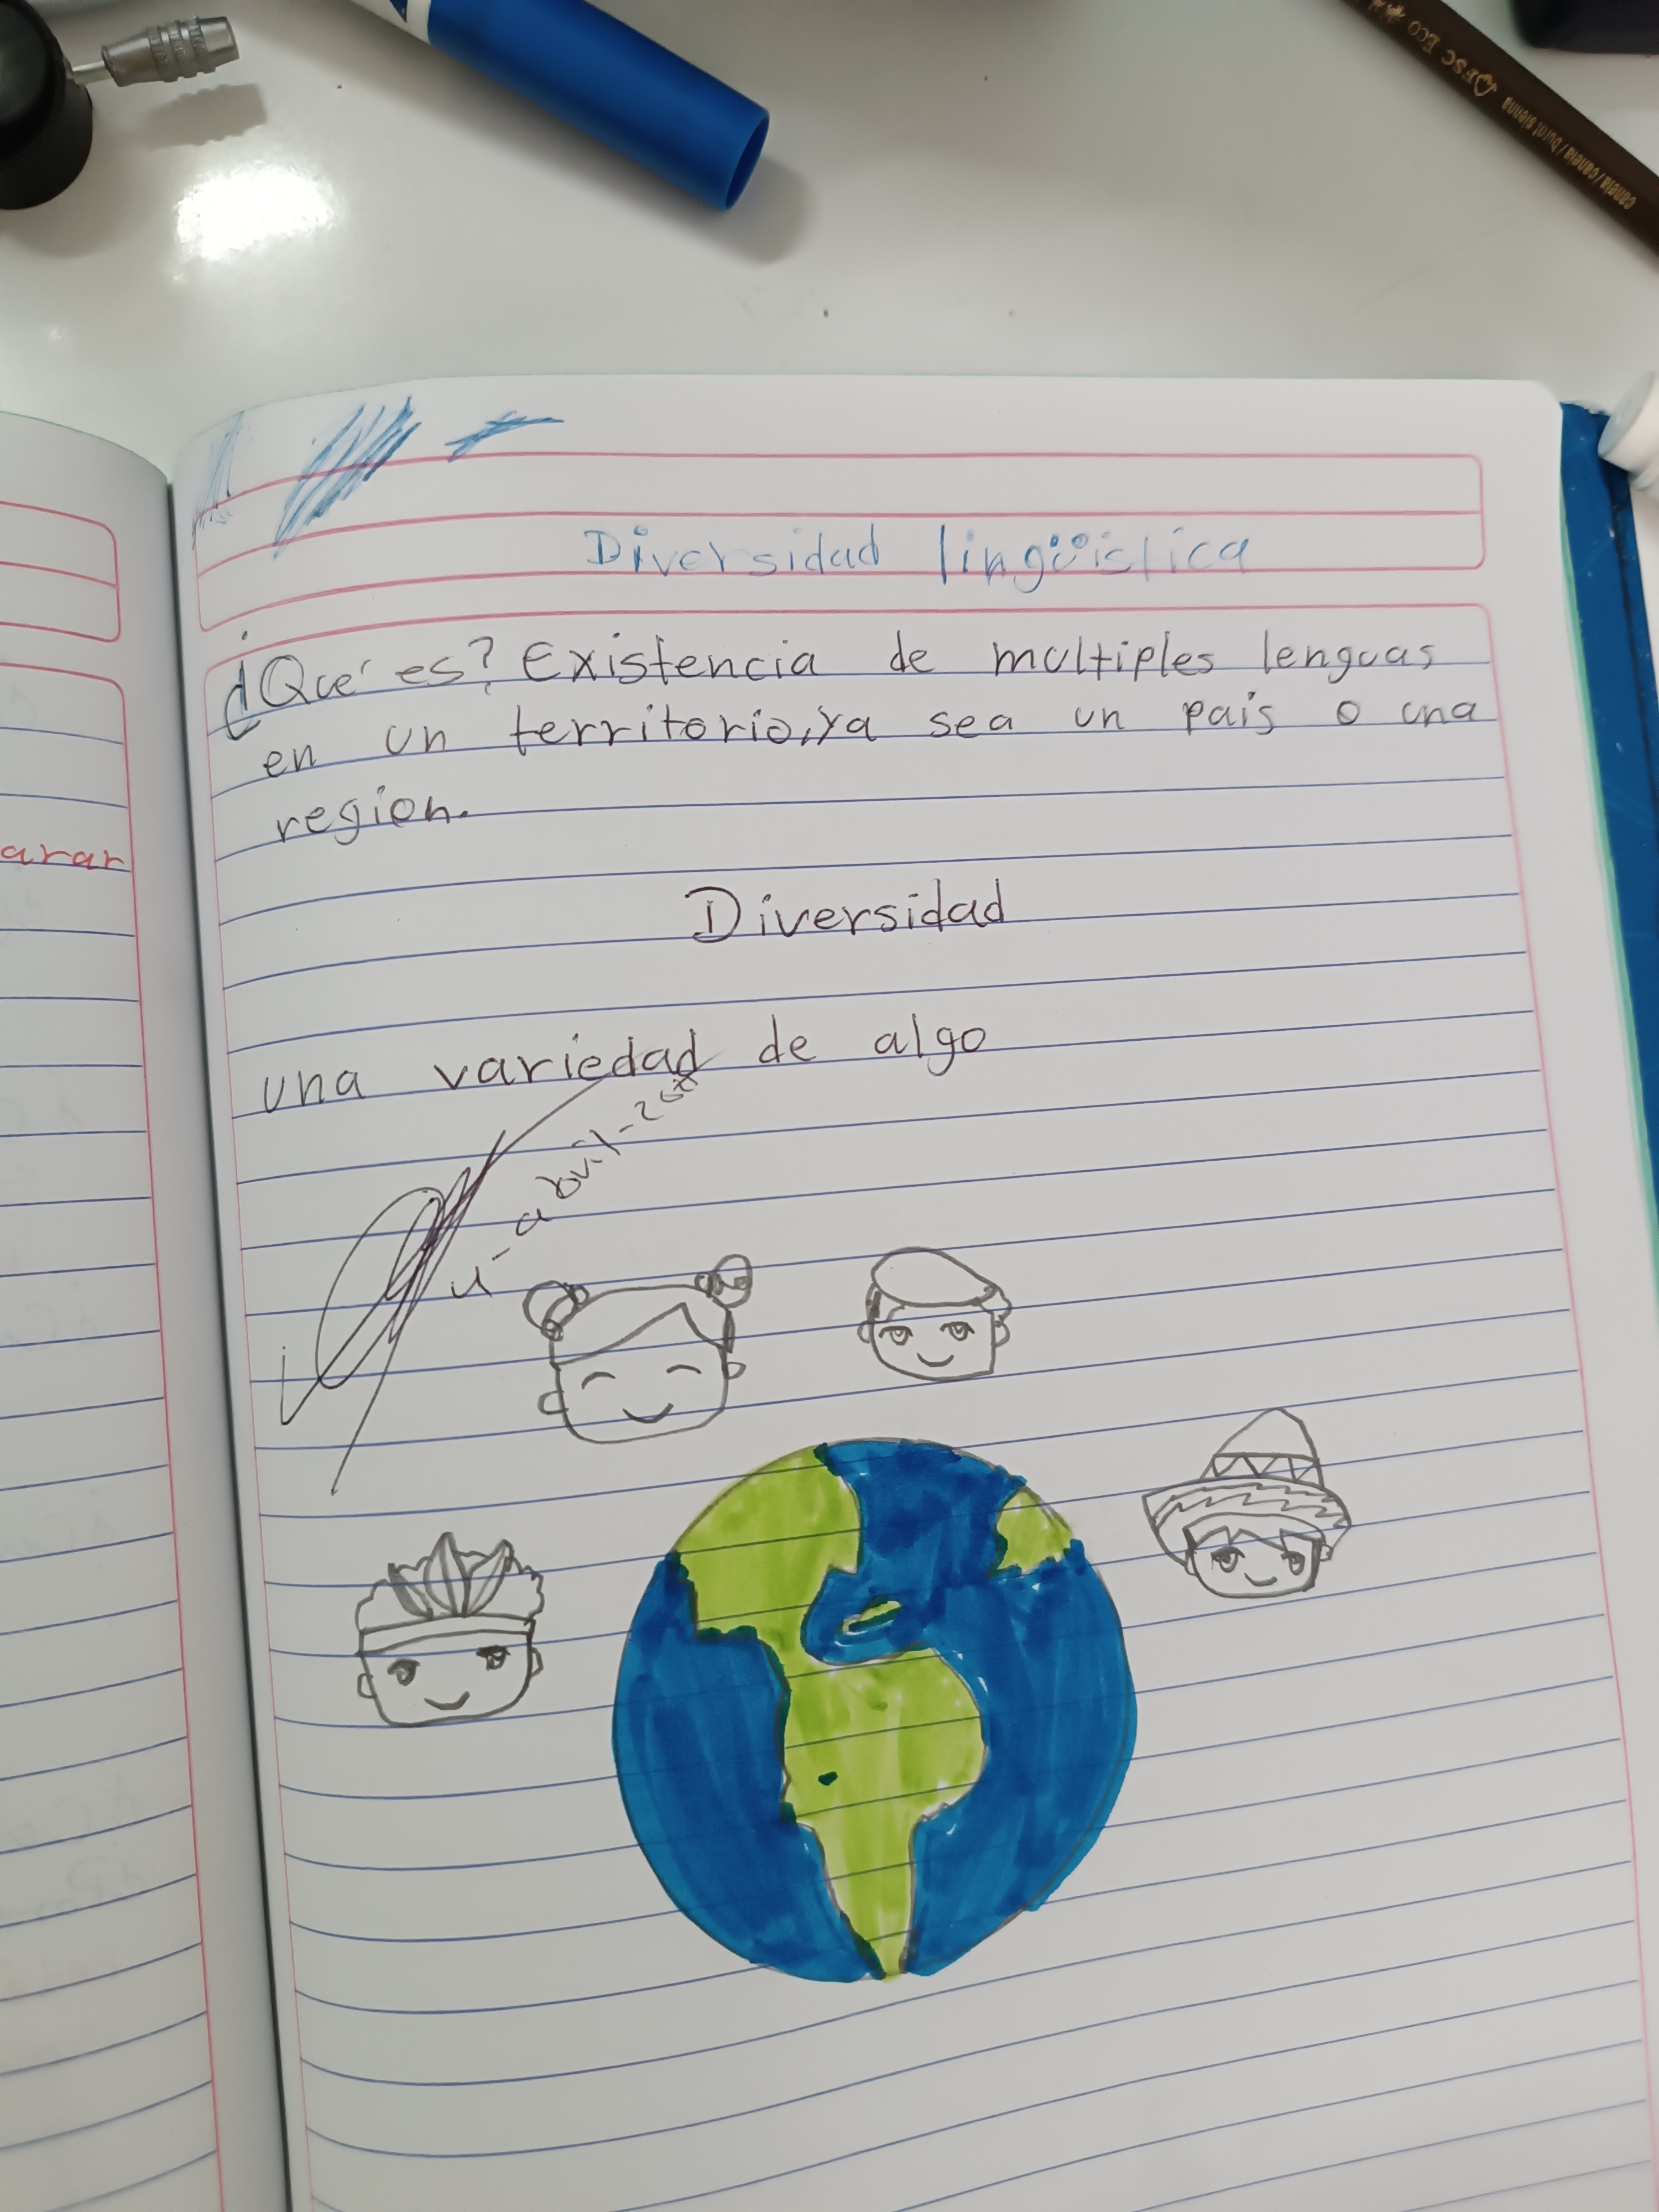 DESC ECO
canela/canela/burnt sienna
Diversidad lingüística
¿Qué es? Existencia de multiples lenguas
en un territorio, ya sea un pais o una
region.
arar
Diversidad
una variedad de algo
abril